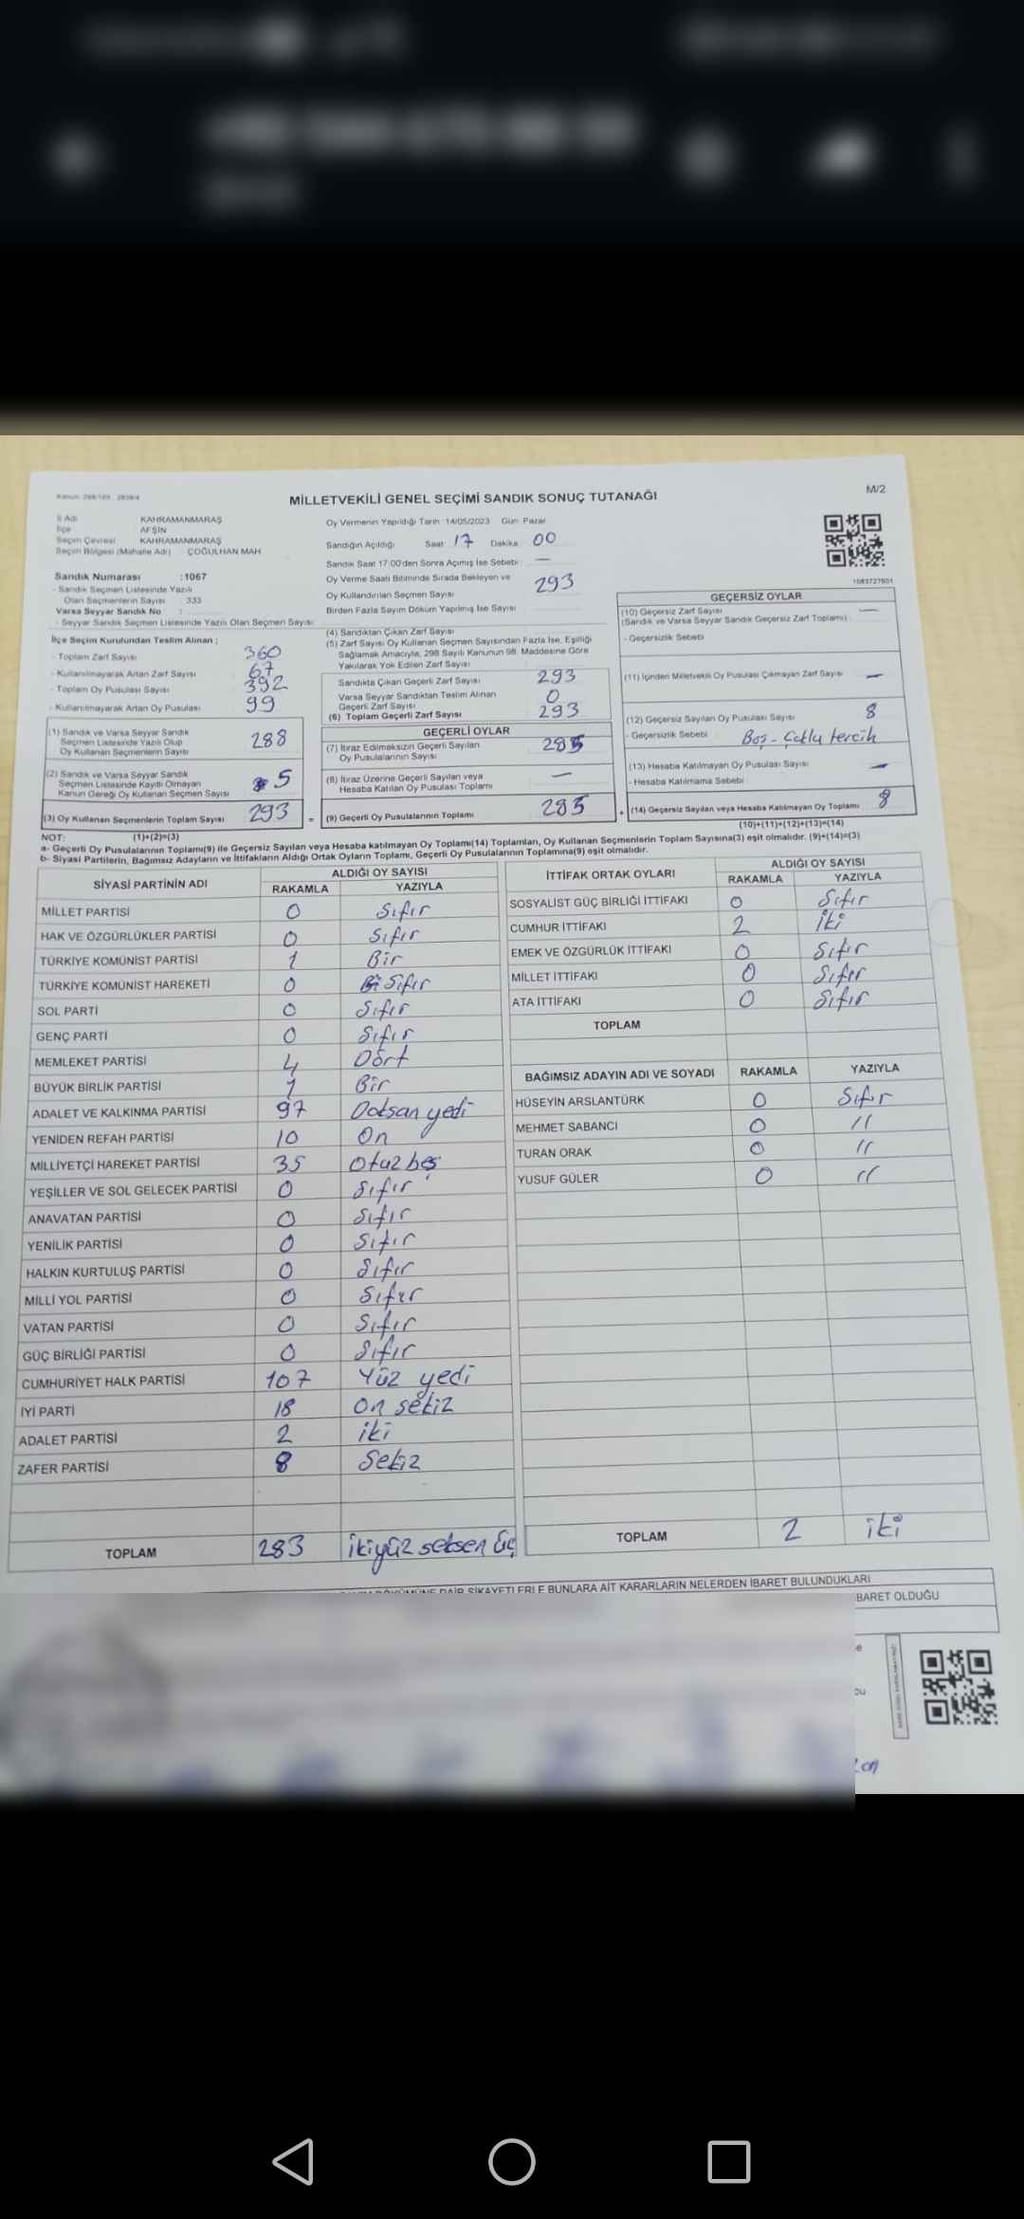 MİLLETVEKİLİ GENEL SEÇİMİ SANDIK SONUÇ TUTANAĞI
M/2
İl Adı KAHRAMANMARAŞ
İlçe AFŞİN
Seçim Çevresi KAHRAMANMARAŞ
Seçim Bölgesi (Mahalle Adı) ÇOĞULHAN MAH
Sandık Numarası :1067
- Sandık Seçmen Listesinde Yazılı
Olan Seçmenlerin Sayısı 333
Varsa Seyyar Sandık No :
- Seyyar Sandık Seçmen Listesinde Yazılı Olan Seçmen Sayısı
Oy Vermenin Yapıldığı Tarih :14/05/2023 Gün: Pazar
Sandığın Açıldığı Saat 17 Dakika 00
Sandık Saat 17:00'den Sonra Açılmış İse Sebebi: —
Oy Verme Saati Bitiminde Sırada Bekleyen ve
Oy Kullandırılan Seçmen Sayısı 293
Birden Fazla Sayım Döküm Yapılmış İse Sayısı
1083727601
İlçe Seçim Kurulundan Teslim Alınan ;
- Toplam Zarf Sayısı 360
- Kullanılmayarak Artan Zarf Sayısı 67
- Toplam Oy Pusulası Sayısı 392
- Kullanılmayarak Artan Oy Pusulası 99
(1) Sandık ve Varsa Seyyar Sandık
Seçmen Listesinde Yazılı Olup
Oy Kullanan Seçmenlerin Sayısı 288
(2) Sandık ve Varsa Seyyar Sandık
Seçmen Listesinde Kayıtlı Olmayan
Kanun Gereği Oy Kullanan Seçmen Sayısı 5
(3) Oy Kullanan Seçmenlerin Toplam Sayısı 293
(4) Sandıktan Çıkan Zarf Sayısı
(5) Zarf Sayısı Oy Kullanan Seçmen Sayısından Fazla İse, Eşitliği
Sağlamak Amacıyla, 298 Sayılı Kanunun 98. Maddesine Göre
Yakılarak Yok Edilen Zarf Sayısı
Sandıkta Çıkan Geçerli Zarf Sayısı 293
Varsa Seyyar Sandıktan Teslim Alınan
Geçerli Zarf Sayısı 0
(6) Toplam Geçerli Zarf Sayısı 293
GEÇERLİ OYLAR
(7) İtiraz Edilmeksizin Geçerli Sayılan
Oy Pusulalarının Sayısı 285
(8) İtiraz Üzerine Geçerli Sayılan veya
Hesaba Katılan Oy Pusulası Toplamı —
= (9) Geçerli Oy Pusulalarının Toplamı 285
GEÇERSİZ OYLAR
(10) Geçersiz Zarf Sayısı —
(Sandık ve Varsa Seyyar Sandık Geçersiz Zarf Toplamı)
- Geçersizlik Sebebi
(11) İçinden Milletvekili Oy Pusulası Çıkmayan Zarf Sayısı —
(12) Geçersiz Sayılan Oy Pusulası Sayısı 8
- Geçersizlik Sebebi Boş - Çoklu tercih
(13) Hesaba Katılmayan Oy Pusulası Sayısı —
- Hesaba Katılmama Sebebi
+ (14) Geçersiz Sayılan veya Hesaba Katılmayan Oy Toplamı 8
(10)+(11)+(12)+(13)=(14)
NOT: (1)+(2)=(3)
a- Geçerli Oy Pusulalarının Toplamı(9) ile Geçersiz Sayılan veya Hesaba katılmayan Oy Toplamı(14) Toplamları, Oy Kullanan Seçmenlerin Toplam Sayısına(3) eşit olmalıdır. (9)+(14)=(3)
b- Siyasi Partilerin, Bağımsız Adayların ve İttifakların Aldığı Ortak Oyların Toplamı, Geçerli Oy Pusulalarının Toplamına(9) eşit olmalıdır.
SİYASİ PARTİNİN ADI ALDIĞI OY SAYISI
RAKAMLA YAZIYLA
MİLLET PARTİSİ 0 Sıfır
HAK VE ÖZGÜRLÜKLER PARTİSİ 0 Sıfır
TÜRKİYE KOMÜNİST PARTİSİ 1 Bir
TÜRKİYE KOMÜNİST HAREKETİ 0 Sıfır
SOL PARTİ 0 Sıfır
GENÇ PARTİ 0 Sıfır
MEMLEKET PARTİSİ 4 Dört
BÜYÜK BİRLİK PARTİSİ 1 Bir
ADALET VE KALKINMA PARTİSİ 97 Doksan yedi
YENİDEN REFAH PARTİSİ 10 On
MİLLİYETÇİ HAREKET PARTİSİ 35 Otuz beş
YEŞİLLER VE SOL GELECEK PARTİSİ 0 Sıfır
ANAVATAN PARTİSİ 0 Sıfır
YENİLİK PARTİSİ 0 Sıfır
HALKIN KURTULUŞ PARTİSİ 0 Sıfır
MİLLİ YOL PARTİSİ 0 Sıfır
VATAN PARTİSİ 0 Sıfır
GÜÇ BİRLİĞİ PARTİSİ 0 Sıfır
CUMHURİYET HALK PARTİSİ 107 Yüz yedi
İYİ PARTİ 18 On sekiz
ADALET PARTİSİ 2 iki
ZAFER PARTİSİ 8 Sekiz
TOPLAM 283 ikiyüz seksen üç
İTTİFAK ORTAK OYLARI ALDIĞI OY SAYISI
RAKAMLA YAZIYLA
SOSYALİST GÜÇ BİRLİĞİ İTTİFAKI 0 Sıfır
CUMHUR İTTİFAKI 2 İki
EMEK VE ÖZGÜRLÜK İTTİFAKI 0 Sıfır
MİLLET İTTİFAKI 0 Sıfır
ATA İTTİFAKI 0 Sıfır
TOPLAM
BAĞIMSIZ ADAYIN ADI VE SOYADI RAKAMLA YAZIYLA
HÜSEYİN ARSLANTÜRK 0 Sıfır
MEHMET SABANCI 0 //
TURAN ORAK 0 //
YUSUF GÜLER 0 //
TOPLAM 2 iki
DAİR ŞİKAYETLERLE BUNLARA AİT KARARLARIN NELERDEN İBARET BULUNDUKLARI
BARET OLDUĞU